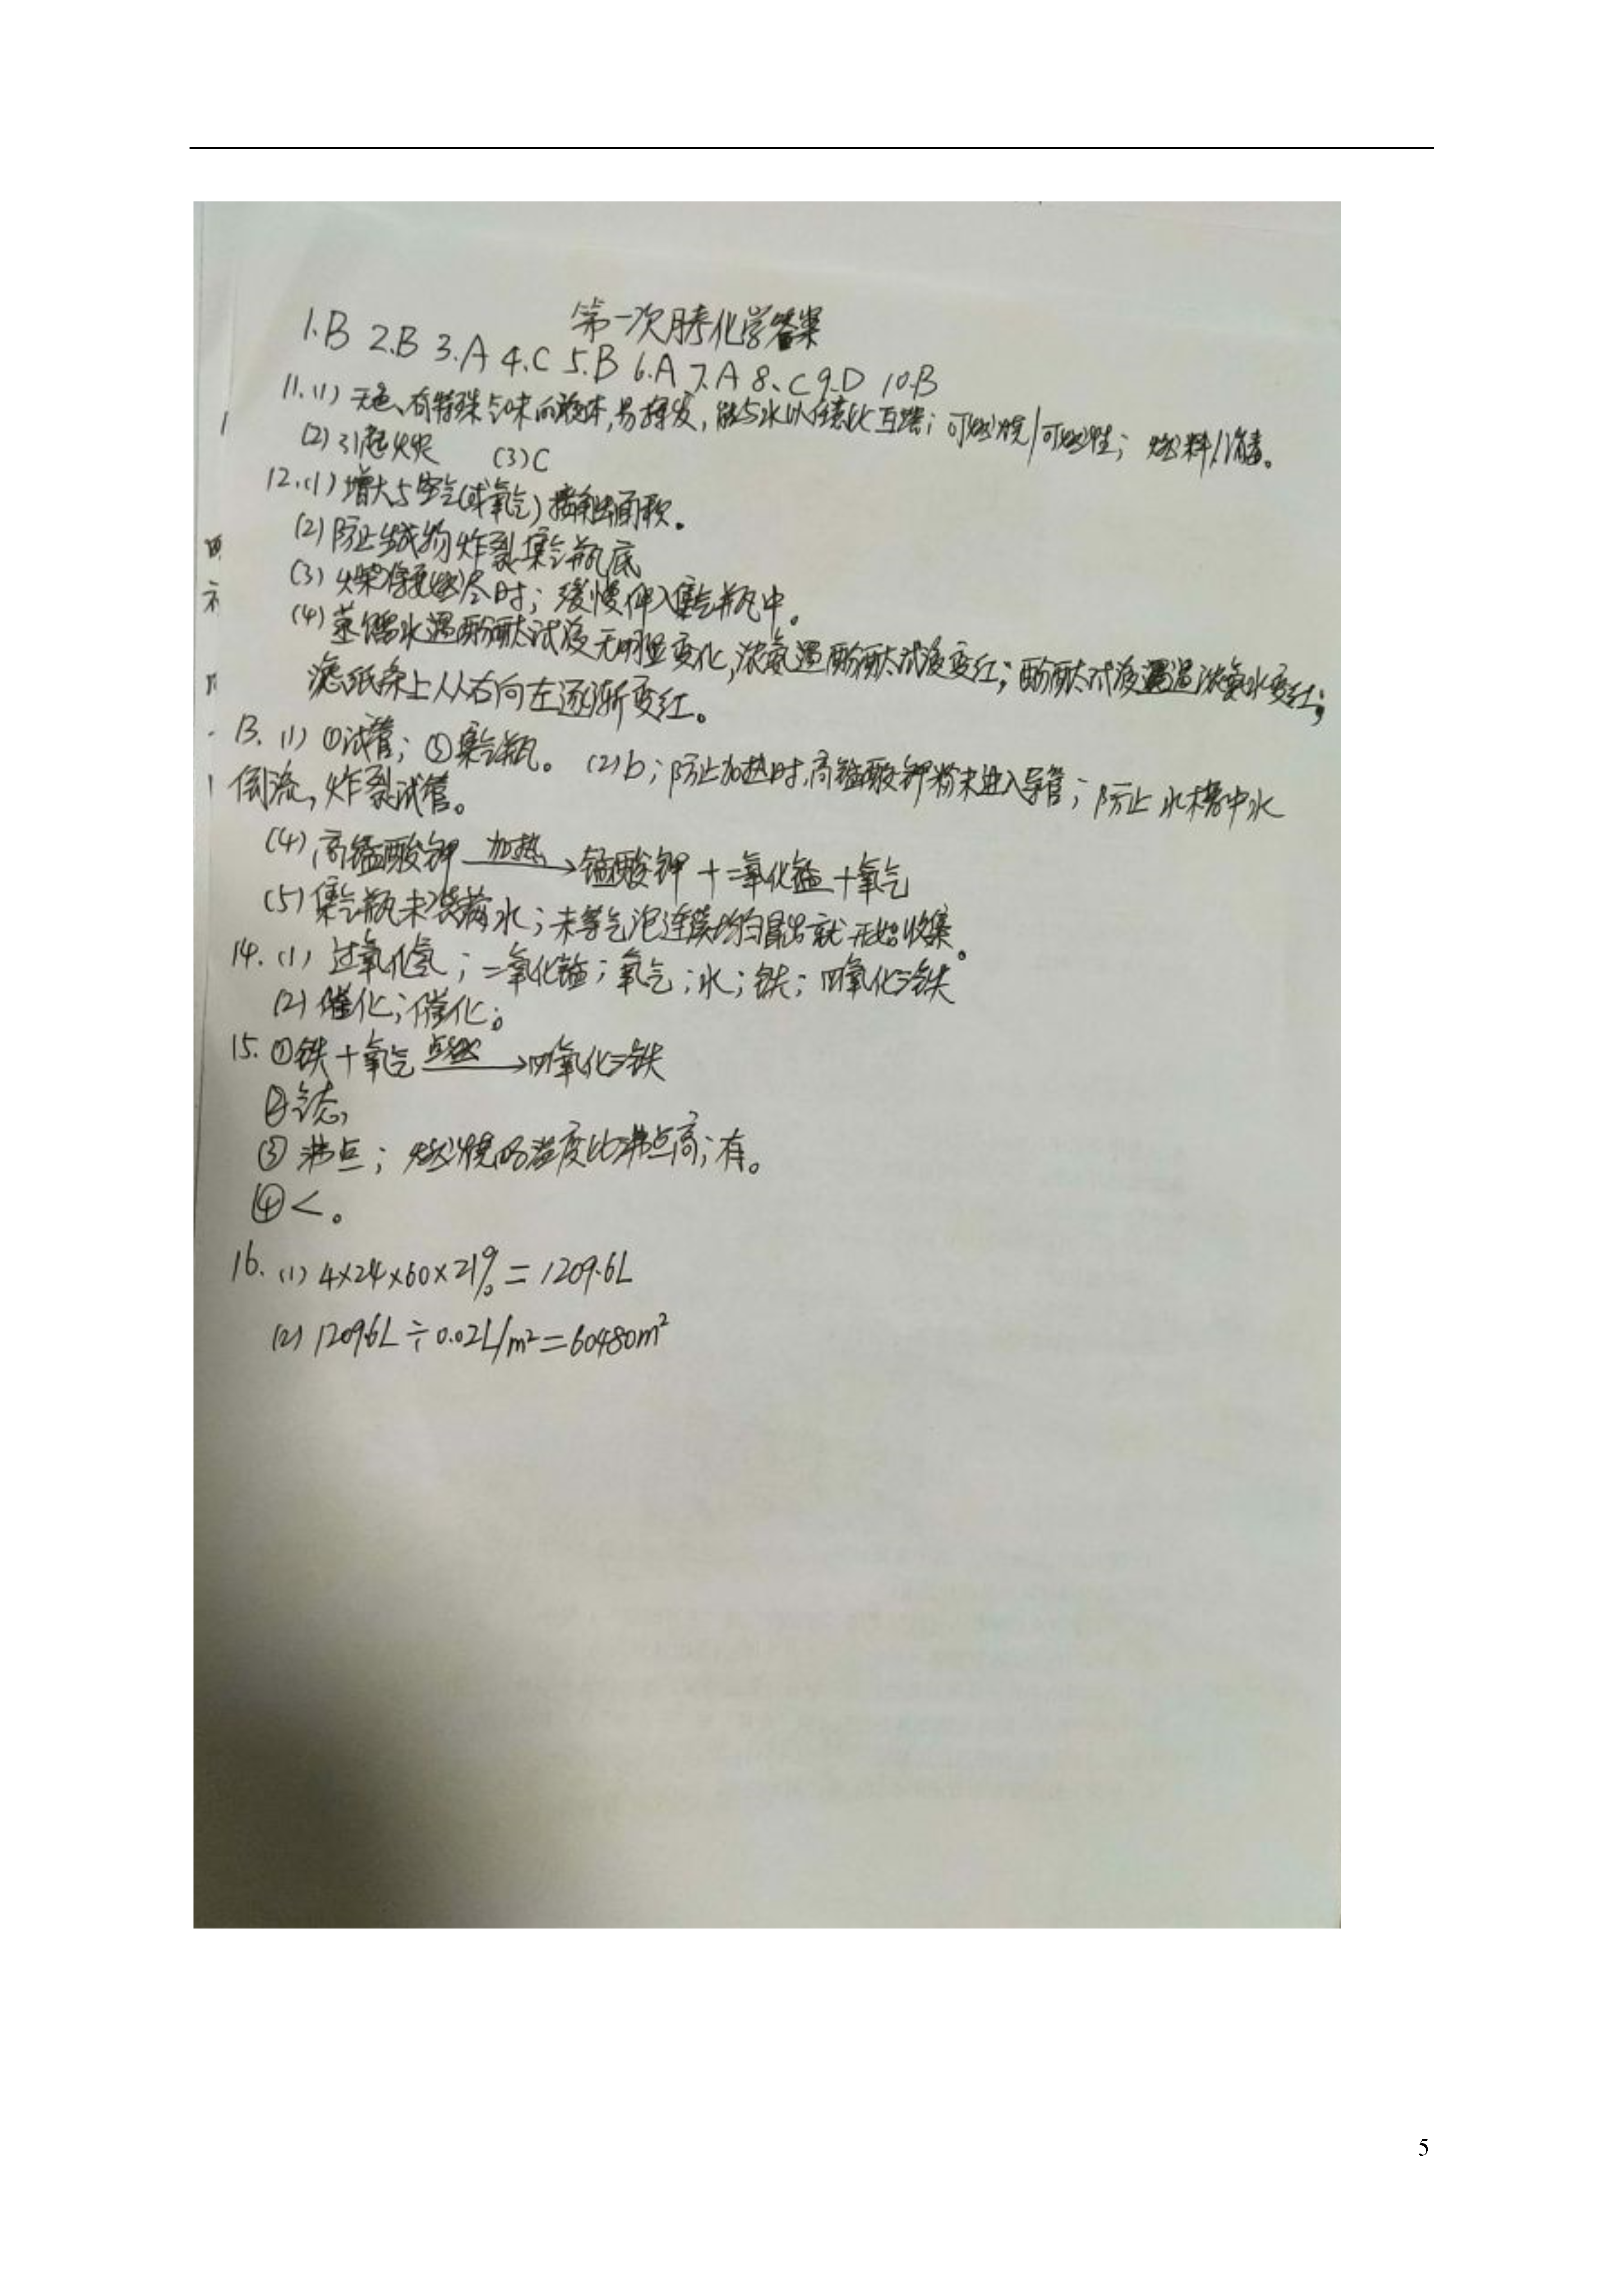 第一次月考化学答案
1.B 2.B 3.A 4.C 5.B 6.A 7.A 8、C 9.D 10.B
11.(1) 无色、有特殊气味的液体,易挥发,能与水以任意比互溶;可燃烧/可燃性;燃料/消毒。
(2)引起火灾 (3)C
12.(1)增大与空气(或氧气)接触面积。
(2)防止生成物炸裂集气瓶底
(3)火柴将要燃尽时;缓慢伸入集气瓶中。
(4)蒸馏水遇酚酞试液无明显变化,浓氨遇酚酞试液变红;酚酞试液遇浓氨水变红;
滤纸条上从右向左逐渐变红。
13.(1)①试管;⑤集气瓶。 (2)b;防止加热时,高锰酸钾粉末进入导管;防止水槽中水
倒流,炸裂试管。
(4)高锰酸钾 加热→ 锰酸钾+二氧化锰+氧气
(5)集气瓶未装满水;未等气泡连续均匀冒出就开始收集。
14.(1) 过氧化氢;二氧化锰;氧气;水;铁;四氧化三铁
(2)催化;催化。
15.①铁+氧气 点燃→ 四氧化三铁
②气态,
③沸点;燃烧的温度比沸点高;有。
④<。
16.(1) 4×24×60×21%=1209.6L
(2) 1209.6L÷0.02L/m²=60480m²
5